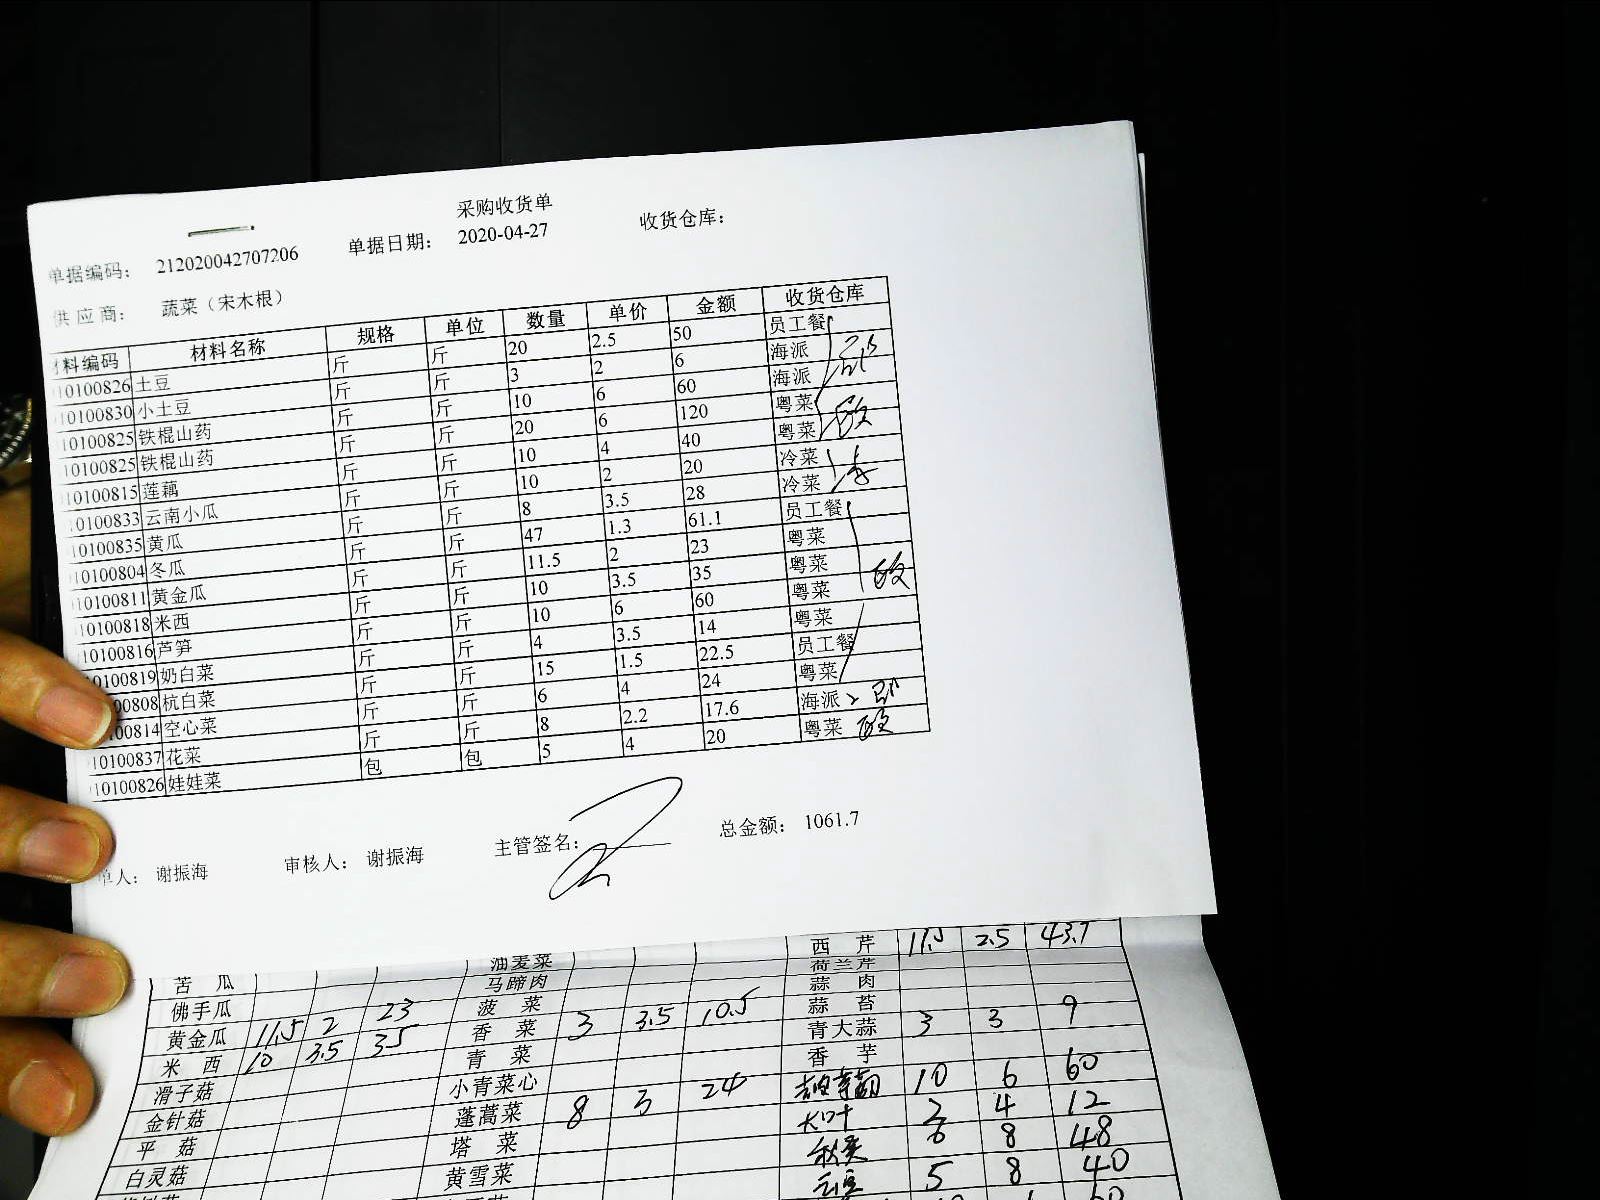 采购收货单
单据编码: 212020042707206 单据日期: 2020-04-27 收货仓库:
供应商: 蔬菜（宋木根）
材料编码 材料名称 规格 单位 数量 单价 金额 收货仓库
10100826 土豆 斤 斤 20 2.5 50 员工餐
10100830 小土豆 斤 斤 3 2 6 海派
10100825 铁棍山药 斤 斤 10 6 60 海派
10100825 铁棍山药 斤 斤 20 6 120 粤菜
10100815 莲藕 斤 斤 10 4 40 粤菜
10100833 云南小瓜 斤 斤 10 2 20 冷菜
10100835 黄瓜 斤 斤 8 3.5 28 冷菜
10100804 冬瓜 斤 斤 47 1.3 61.1 员工餐
10100811 黄金瓜 斤 斤 11.5 2 23 粤菜
10100818 米西 斤 斤 10 3.5 35 粤菜
10100816 芦笋 斤 斤 10 6 60 粤菜
10100819 奶白菜 斤 斤 4 3.5 14 粤菜
00808 杭白菜 斤 斤 15 1.5 22.5 员工餐
00814 空心菜 斤 斤 6 4 24 粤菜
10100837 花菜 斤 斤 8 2.2 17.6 海派
10100826 娃娃菜 包 包 5 4 20 粤菜
单人: 谢振海 审核人: 谢振海 主管签名: 总金额: 1061.7
苦瓜 油麦菜 西芹 11.5 2.5 43.7
佛手瓜 马蹄肉 荷兰芹
黄金瓜 11.5 2 23 菠菜 蒜肉
米西 10 3.5 35 香菜 3 3.5 10.5 蒜苔
滑子菇 青菜 青大蒜 3 3 9
金针菇 小青菜心 香芋
平菇 蓬蒿菜 8 3 24 10 6 60
白灵菇 塔菜 大叶 3 4 12
黄雪菜 秋葵 6 8 48
5 8 40